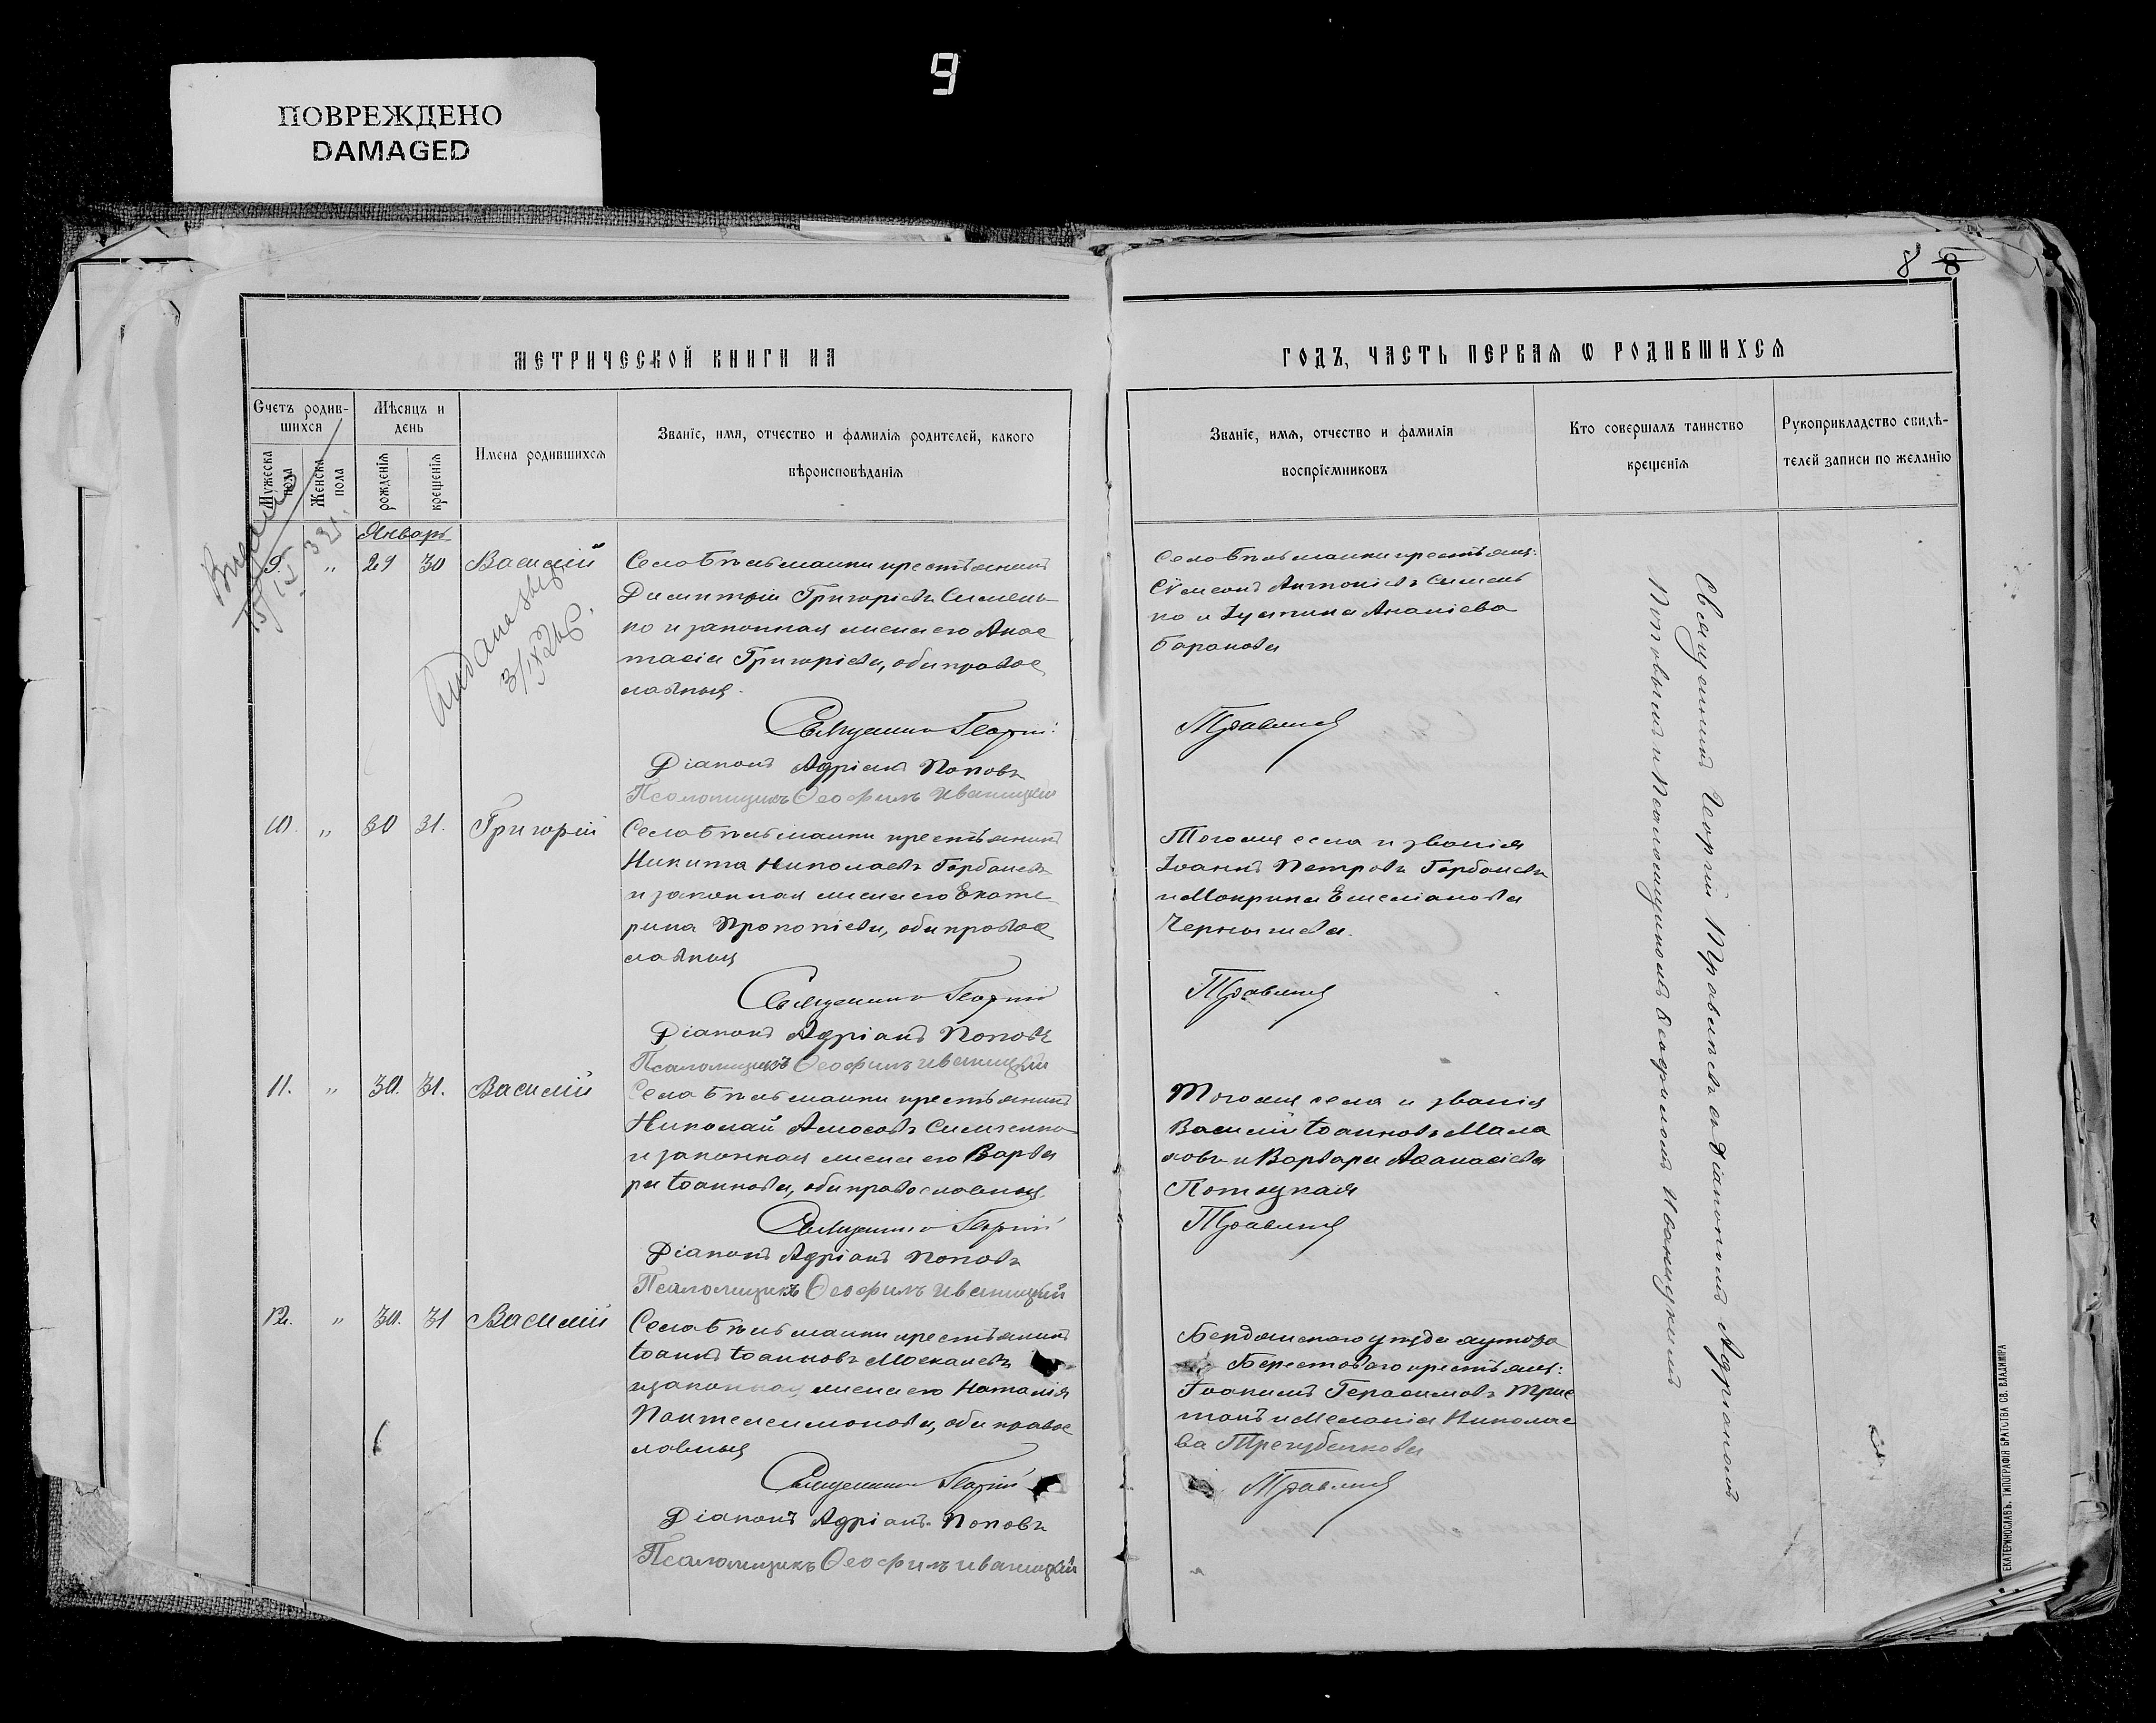 9
ПОВРЕЖДЕНО
DAMAGED
8 8
МЕТРИЧЕСКОЙ КНИГИ НА
ГОДЪ, ЧАСТЬ ПЕРВАЯ Ѡ РОДИВШИХСЯ
Счетъ родив-
шихся
Мужеска
пола
Женска
пола
Мѣсяцъ и
день
рожденія
крещенія
Имена родившихся
Званіе, имя, отчество и фамилія родителей, какого
вѣроисповѣданія
Званіе, имя, отчество и фамилія
воспріемниковъ
Кто совершалъ таинство
крещенія
Рукоприкладство свидѣ-
телей записи по желанію
Январь
9. " 29 30 Василій
Село Бѣльманки крестьянинъ
Димитрій Григоріевъ Симень
ко и законная жена его Анас
тасія Григоріева, оба правос
лавныя.
Священникъ Георгій
Діаконъ Адріанъ Поповъ
Псаломщикъ Ѳеофилъ Иваницкій
Село Бѣльманки крестьян:
Сѵмеонъ Антоніевъ Симень
ко и Іустина Ананіева
Баранова
Правлик
10. " 30 31. Григорій
Село Бѣльманки крестьянинъ
Никита Николаевъ Горбаневъ
и законная жена его Екате
рина Прокопіева, оба правос
лавныя
Священникъ Георгій
Діаконъ Адріанъ Поповъ
Псаломщикъ Ѳеофилъ Иваницкій
Тогоже села и званія
Іоаннъ Петровъ Горбаневъ
и Макрина Емеліанова
Чернышева.
11. " 30. 31. Василій
Село Бѣльманки крестьянинъ
Николай Амосовъ Симченко
и законная жена его Варва
ра Іоаннова, оба православныя.
Священникъ Георгій
Діаконъ Адріанъ Поповъ
Псаломщикъ Ѳеофилъ Иваницкій
Тогоже села и званія
Василій Іоанновъ Мала
ховъ и Варвара Аѳанасіева
Потоцкая
12. " 30. 31 Василій
Село Бѣльманки крестьянинъ
Іоаннъ Іоанновъ
и законная жена его Наталія
Пантелеимонова, оба правос
лавныя
Священникъ Георгій
Діаконъ Адріанъ Поповъ
Псаломщикъ Ѳеофилъ Иваницкій
Бердянскаго уѣзда хутора
Берестоваго крестьян:
Іоакимъ Герасимовъ Трис
танъ и Меланія Николае
ва Трегубенкова
Священникъ Георгій съ Діакономъ Адріаномъ
Поповымъ и Псаломщикомъ Ѳеофиломъ Иваницкимъ
ЕКАТЕРИНОСЛАВЪ. ТИПОГРАФІЯ БРАТСТВА СВ. ВЛАДИМІРА